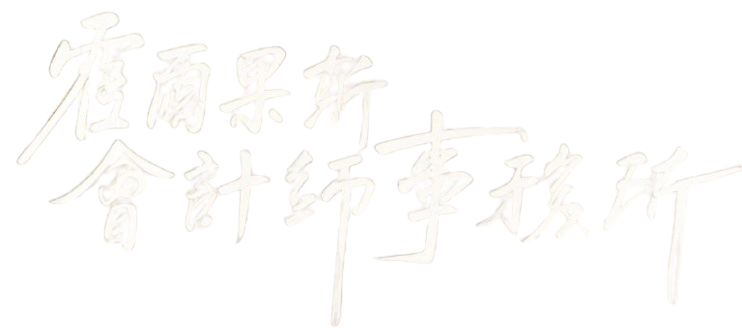 霍爾果斯
會計師事務所